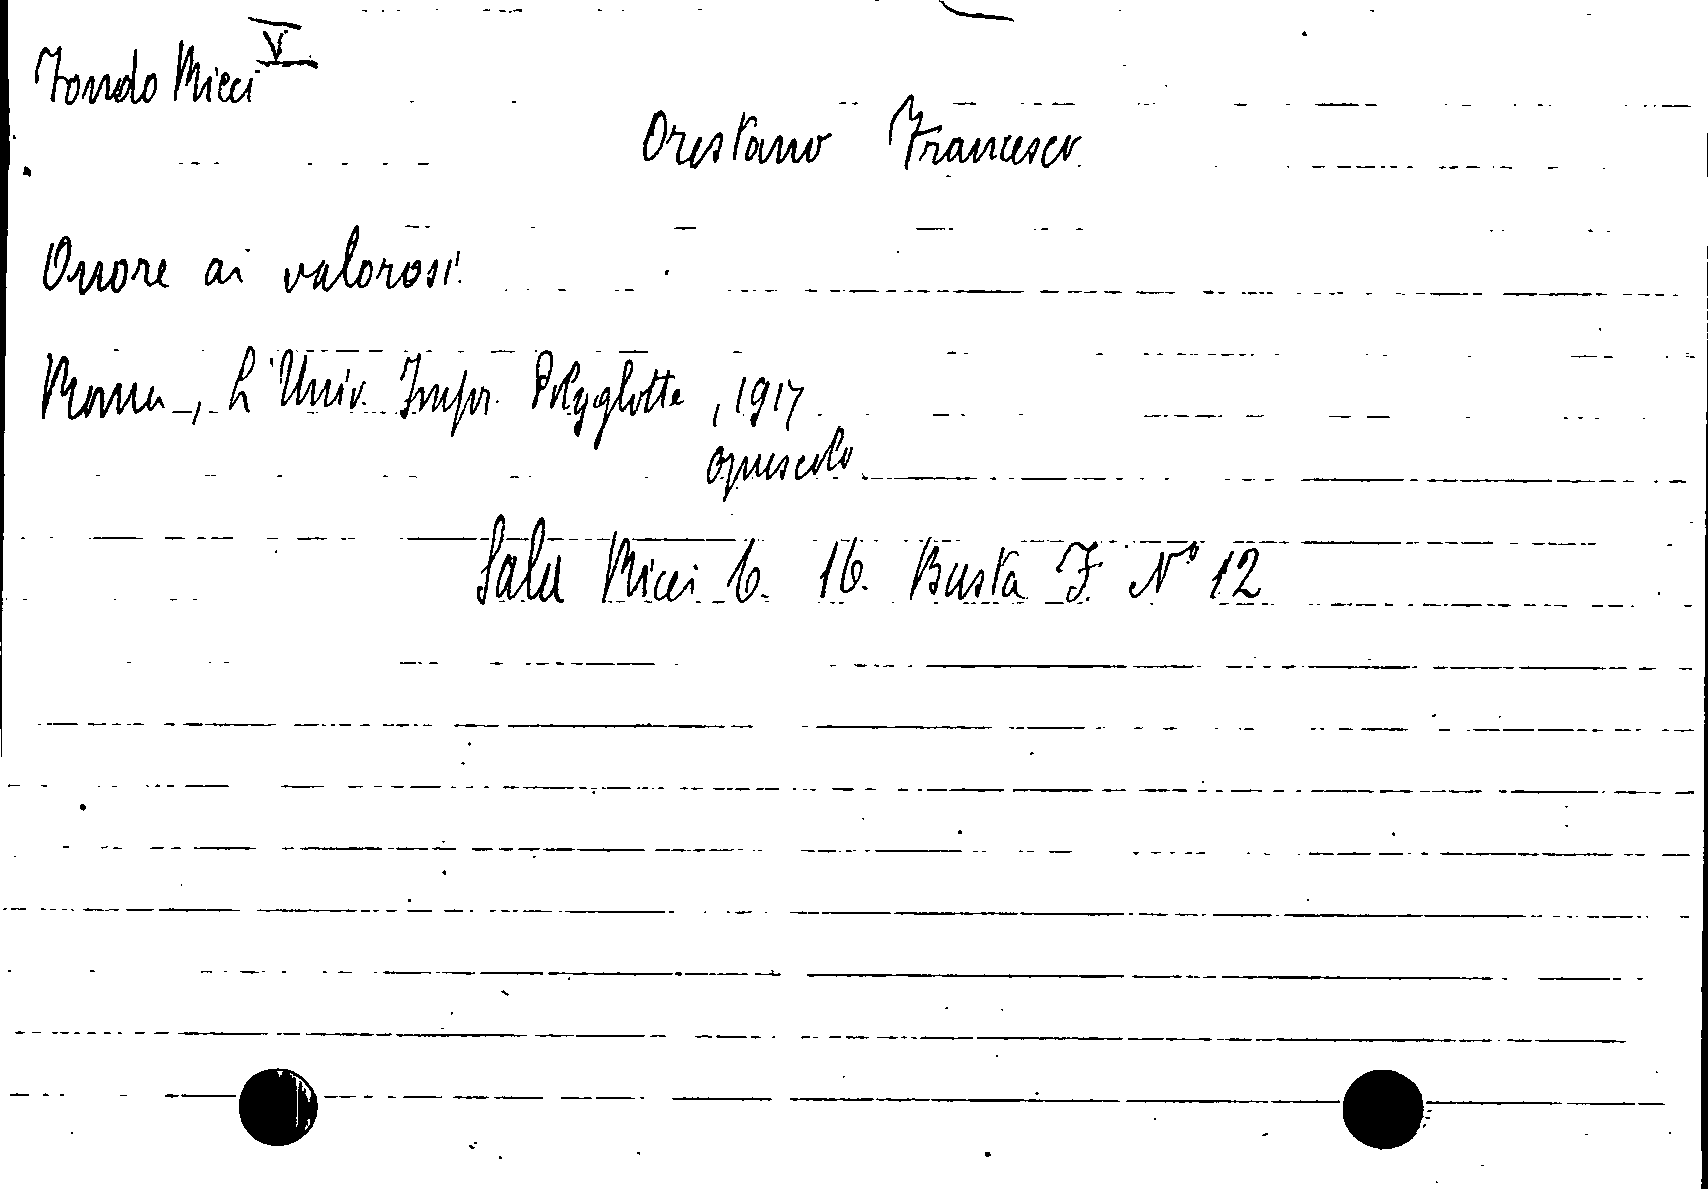 Fondo Ricci V
Orestano Francesco
Onore ai valorosi.
Roma, L'Univ. Impr. Polyglotte, 1917
opuscolo
Sala Ricci 6. 16. Busta F. N° 12